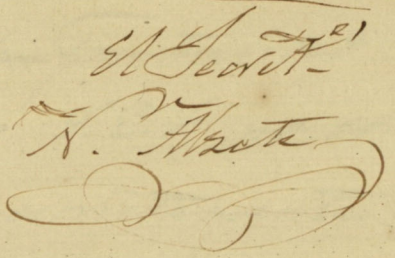 El Secret.º
N. Alzate